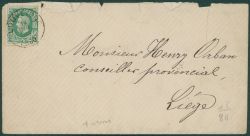 Monsieur Henry Orban
conseiller provincial,
Liége